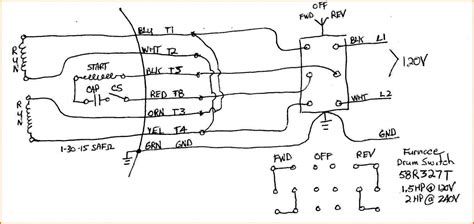 OFF
FWD
REV
BLU T1
L1
RUN
WHT T2
START
BLK T5
BLK
120V
CAP
CS
RED T8
WHT
L2
RUN
ORN T3
YEL T4
GND
1-30-15 SAFΩ
GRN GND
FWD OFF REV
Furncee
Drum Switch
58R327T
1.5HP @ 120V
2 HP @ 240V